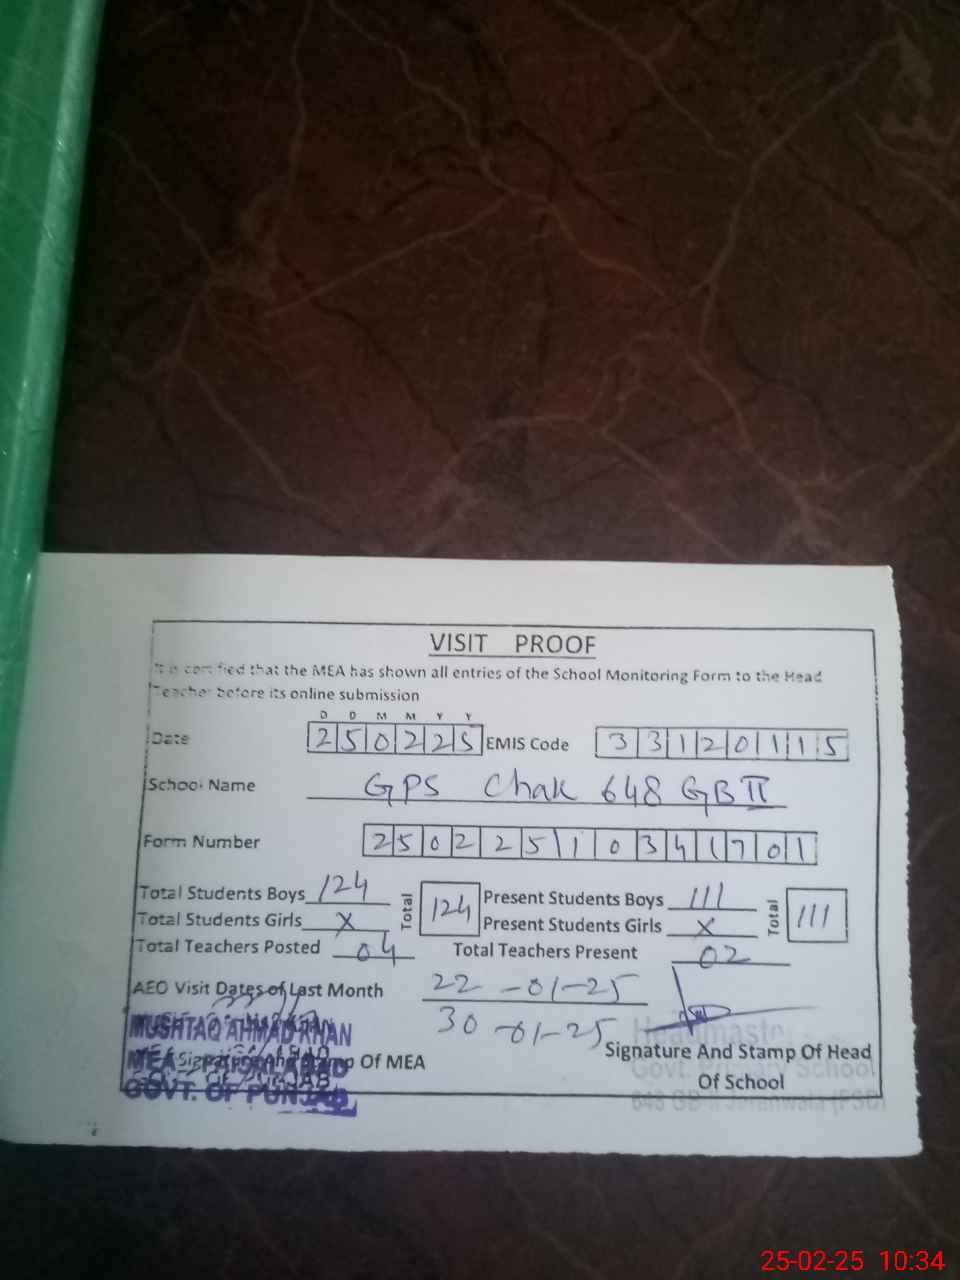 VISIT PROOF
It is certified that the MEA has shown all entries of the School Monitoring Form to the Head
Teacher before its online submission
D D M M Y Y
Date 250225 EMIS Code 33120115
School Name GPS Chak 648 GB II
Form Number 25022510341701
Total Students Boys 124 Total 124 Present Students Boys 111 Total 111
Total Students Girls X Present Students Girls X
Total Teachers Posted 04 Total Teachers Present 02
AEO Visit Dates of Last Month 22-01-25
30-01-25
MUSHTAQ AHMAD KHAN
MEA FAISALABAD
GOVT. OF PUNJAB
Signature And Stamp Of MEA
Headmaster
Signature And Stamp Of Head
Govt. Primary School
Of School
648 GB II Jaranwala (FSD)
25-02-25 10:34